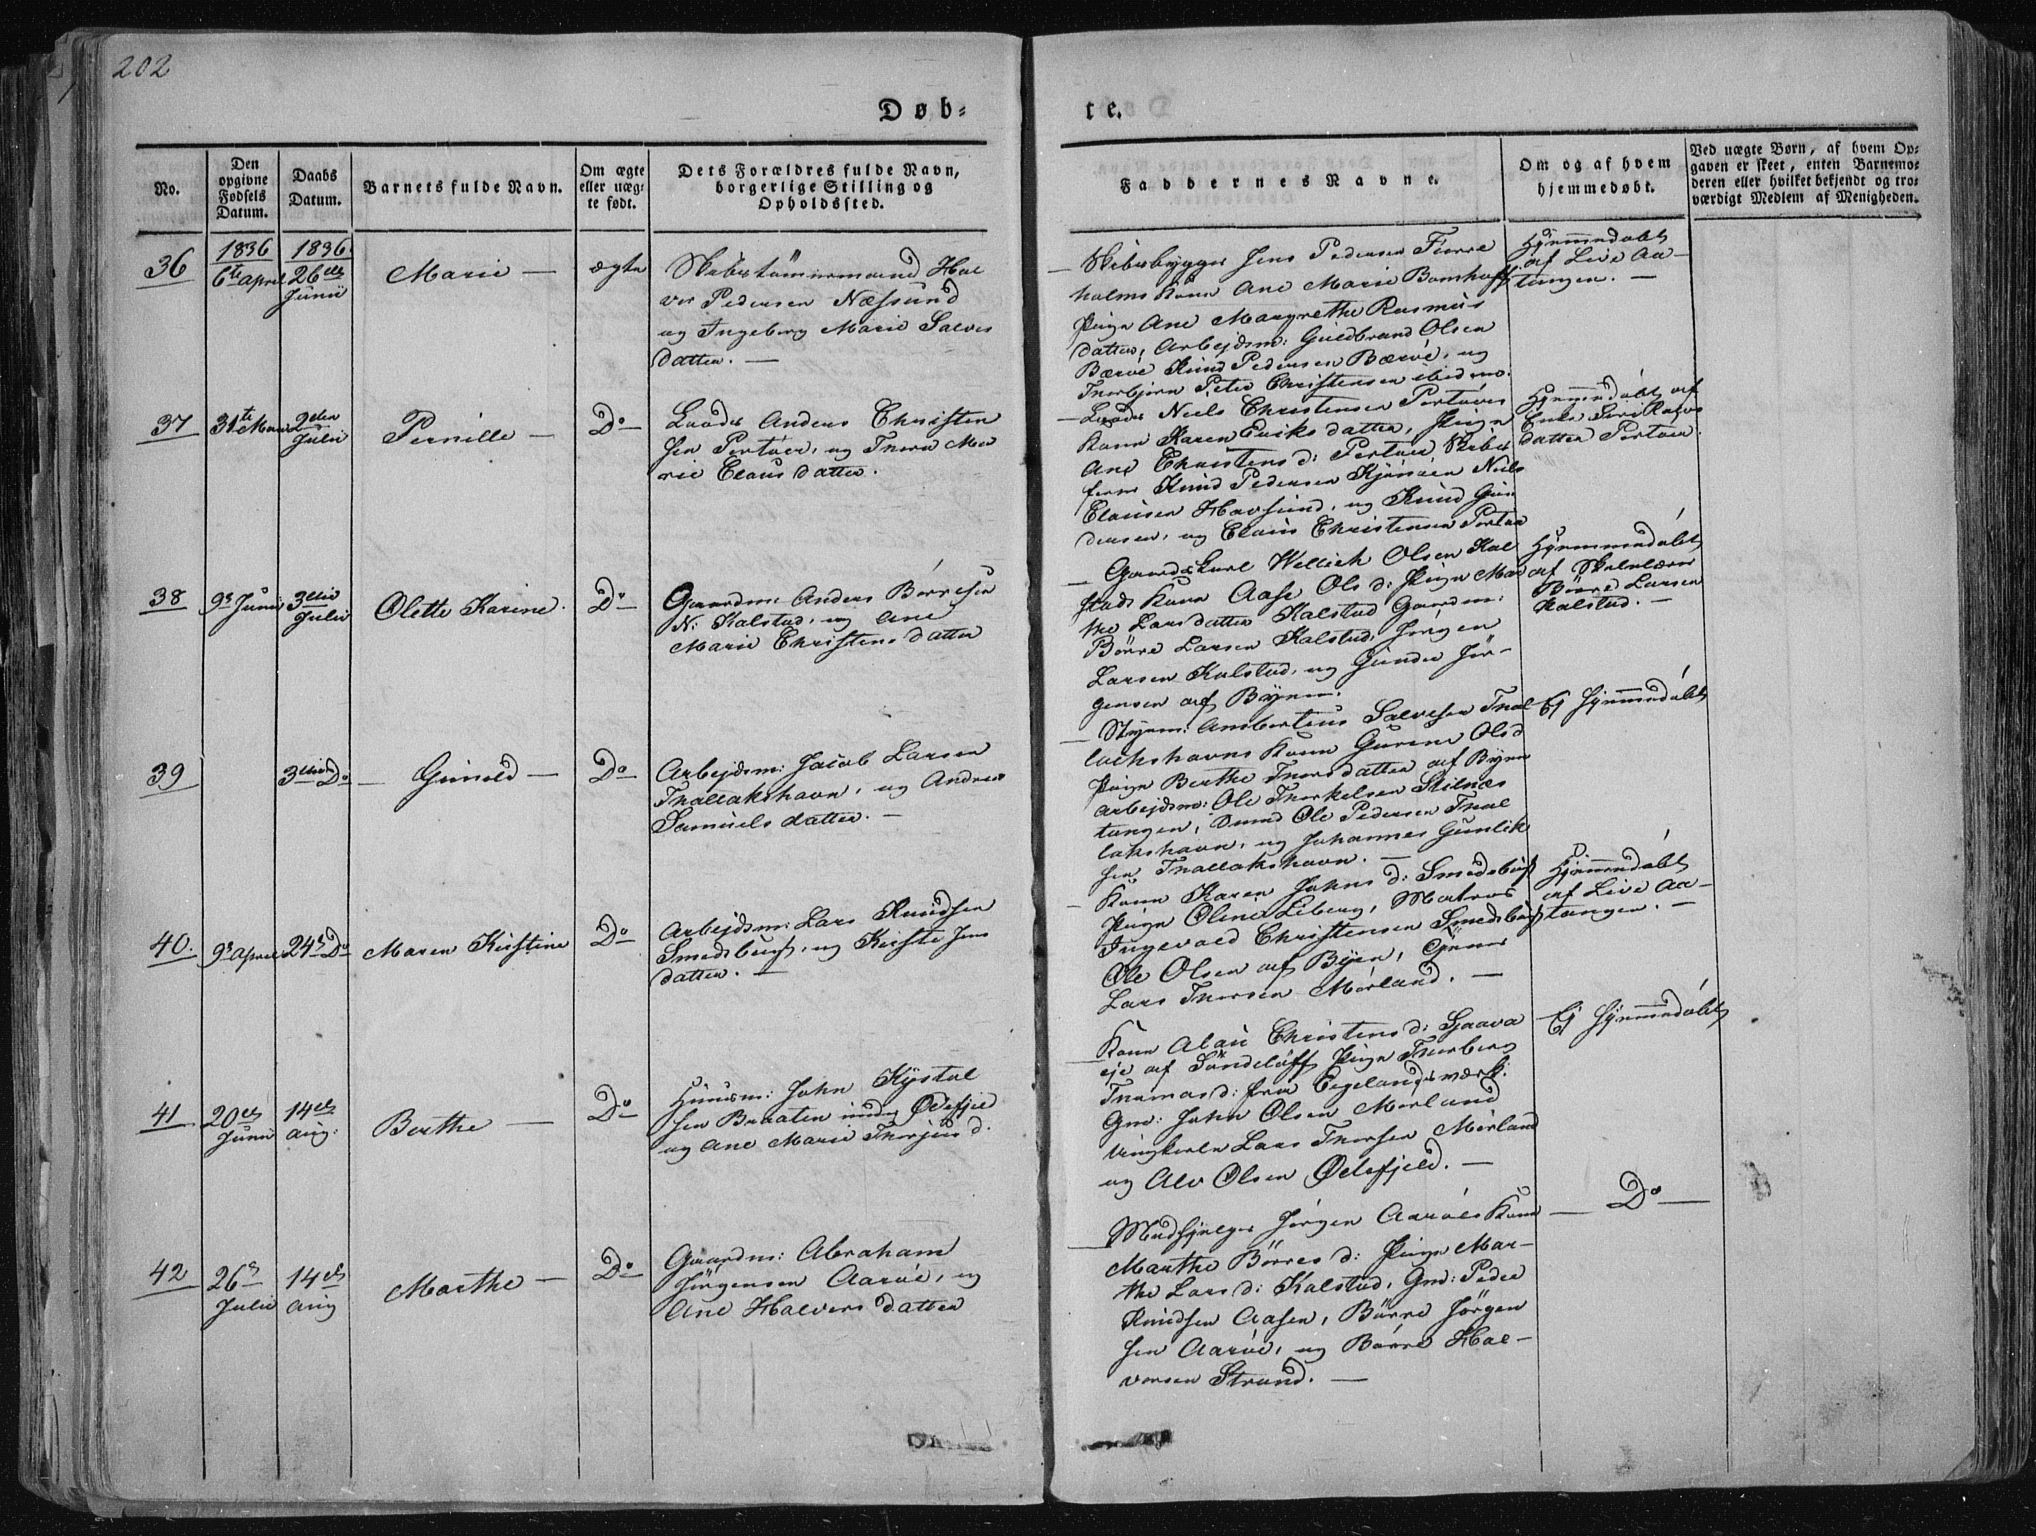 202
Døb-
te.
No.
Den opgivne Fødsels Datum.
Daabs Datum.
Barnets fulde Navn.
Om ægte eller uægte født.
Dets Forældres fulde Navn, borgerlige Stilling og Opholdssted.
Faddernes Navne.
Om og af hvem hjemmedøbt.
Ved uægte Børn, af hvem Opgaven er skeet, enten Barnemoderen eller hvilket bekjendt og troværdigt Medlem af Menigheden.
1836
1836
36
6te April
26de Junii
Marie
ægte
Skibstømmermand Hal
vor Pedersen Næssund
og Ingeborg Marie Salves
datter.
Skibsbygger Jens Pedersen Furre
holms Kone Ane Marie Bomhoff
Pige Ane Margrethe Rasmus
datter, Arbejdsm: Guldbrand Olsen
Bærøe Knud Pedersen Bærøe, og
Thorbjørn Peter Christensen ibidem.
Hjemmedøbt
af Live Aa-
tangen.
37
31te Marts
2den Julii
Pernille
Do
Lods Anders Christen
sen Portøer, og Thora Ma
rie Claus datter.
Lods Niels Christensen Portøers
Kone Karen Eriks datter, Pige
Ane Christens d: Portøer, Skibs
fører Knud Pedersen Kjønsøen Niels
Clausen Havsund, og Knud Gun
dersen, og Claus Christensen Portøer
Hjemmedøbt af
Enke Siri Rolvs
datter Portøer.
38
9de Junii
3die Julii
Olette Karine.
Do
Gaardm: Anders Børresen
N: Kalstad, og Ane
Marie Christens datter
Gaardskarl Wellich Olsen Kal
stads Kone Aase Ols d: Pige Mar
the Larsdatter Kalstad Gaardm:
Børre Larsen Kalstad, Jørgen
Larsen Kalstad, og Gunder Jør-
gensen af Byen.
Hjemmedøbt
af Skolelærer
Børre Larsen
Kalstad.
39
3die Do
Gunild
Do
Arbejdsm: Jacob Larsen
Thallakshavn, og Andrea
Samuels datter.
Styrm: Ambortius Salvesen Thal
lackshavns Kone Gurine Ols d
Pige Berthe Thorsdatter af Byen
Arbejdsm: Ole Thorkelsen Stilnæs
tangen, Dreng Ole Pedersen Thal
lakshavn, og Johannes Gunlik
sen Thallakshavn.
Ej hjemmedøbt
40.
9de April
24de Do
Maren Kirstine
Do
Arbejdsm: Lars Knudsen
Smedsbugt, og Kirste Jens
datter.
Kone Karen Johns d: Smedsbugt
Pige Oline Liberg, Matros
Ingevald Christensen Smedsbugt
Ole Olsen af Byen,
Lars Thorsen Mørland.
Hjemmedøbt
af Live Aa-
tangen.
41
20de Junii
14de Aug:
Berthe
Do
Huusm: John Kystol
sen Braaten under Ødefjeld
og Ane Marie Thorjuus d.
Kone Alau Christens d: Sjaava
eje af Søndeløff, Pige Thorberg
Thomas d: fra Egelandsværk.
Gm: John Olsen Mørland
Ungkarle Lars Thorsen Mørland
og Alv Olsen Ødefjeld.
Ej hjemmedøbt
42
26de Julii
14de Aug
Marthe
Do
Gaardm: Abraham
Jørgensen Aarøe, og
Ane Halvors datter
Medhjelper Jørgen Aarøes Kone
Marthe Børres d: Pige Mar-
the Lars d: Kalstad, Gm: Peder
Knudsen Aasen, Børre Jørgen
sen Aarøe, og Børre Hal-
vorsen Strand.
Do